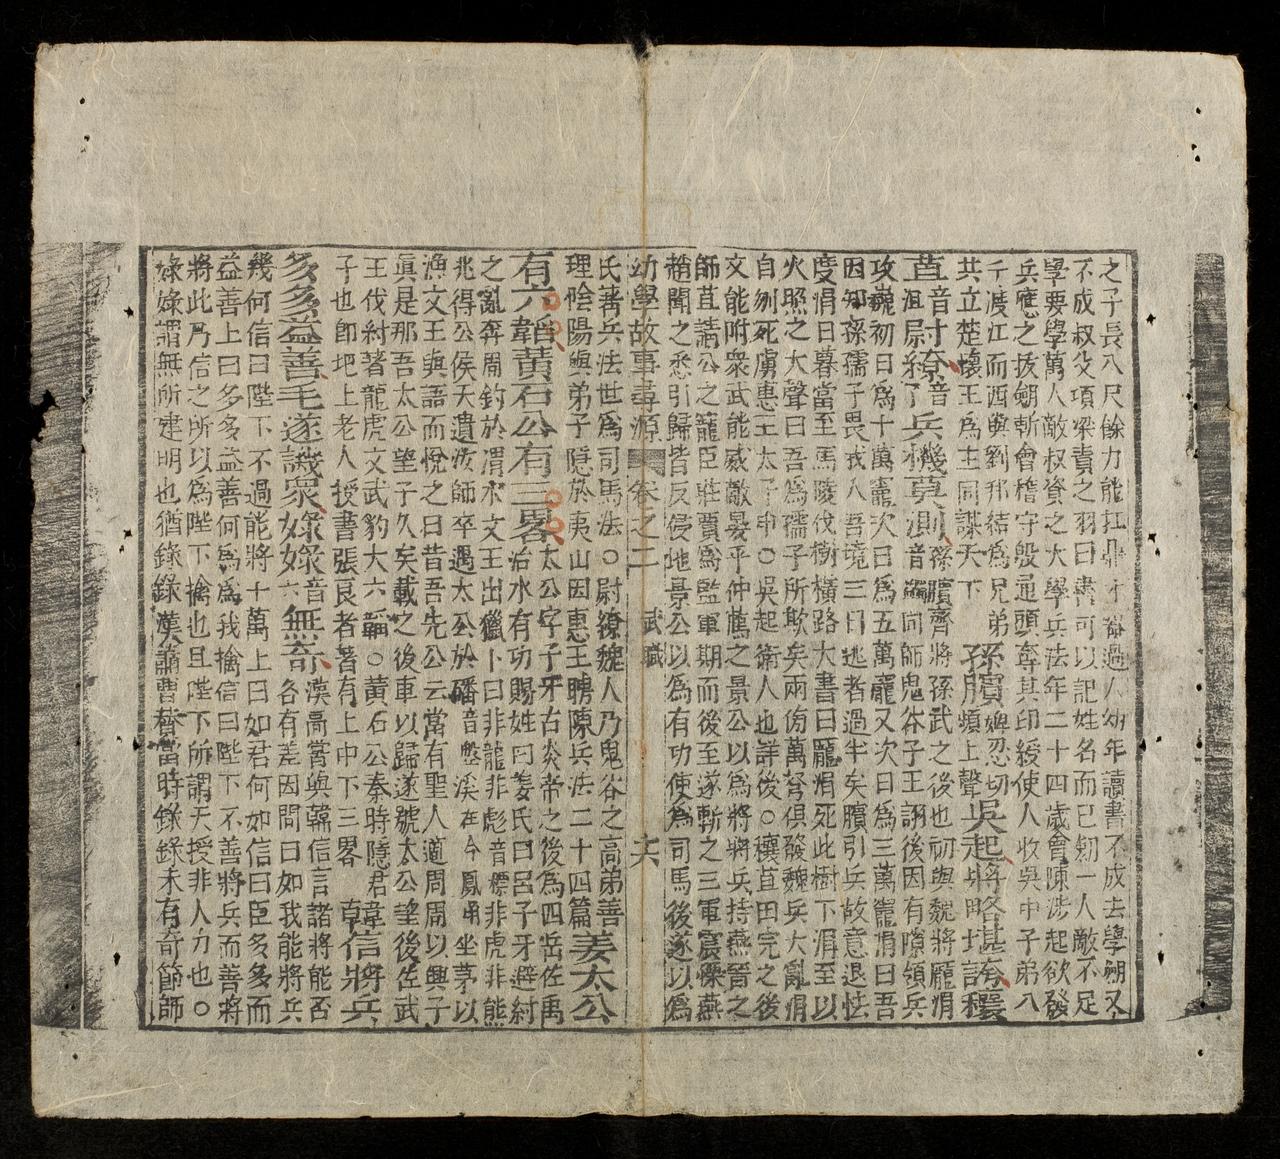 之子長八尺餘力能扛鼎才器過人幼年讀書不成去學劒又
不成叔父項梁責之羽曰書可以記姓名而已劒一人敵不足
學要學萬人敵叔資之大學兵法年二十四歲會陳涉起欲發
兵應之拔劒斬會稽守殷通頭奪其印綬使人收吳中子弟八
千渡江而西與劉邦結爲兄弟
共立楚懷王爲主同謀天下
孫臏婢忍切頻上聲吳起將略堪誇穰
苴音
疽尉繚音
了兵機莫測孫臏齊將孫武之後也初與魏將龐涓
音同師鬼谷子王詡後因有隙領兵
攻魏初日爲十萬竈次日爲五萬竈又次日爲三萬竈涓曰吾
因知孫孺子畏我入吾境三日逃者過半矣臏引兵故意退怯
度涓日暮當至馬陵伐樹橫路大書曰龐涓死此樹下涓至以
火照之大聲曰吾爲孺子所欺矣兩傍萬弩俱發魏兵大亂涓
自刎死虜惠王太子申○吳起衛人也詳後○穰苴田完之後
文能附衆武能威敵晏平仲薦之景公以爲將將兵持燕晉之
師苴請公之寵臣莊賈爲監軍期而後至遂斬之三軍震慄燕
趙聞之悉引歸皆反侵地景公以爲有功使爲司馬後遂以爲
幼學故事尋源 卷之二 武職 十六
氏善兵法世爲司馬法○尉繚魏人乃鬼谷之高弟善
理陰陽與弟子隱於夷山因惠王聘陳兵法二十四篇姜太公
有六韜黃石公有三畧太公字子牙古炎帝之後爲四岳佐禹
治水有功賜姓曰姜氏曰呂子牙避紂
之亂奔周釣於渭水文王出獵卜曰非龍非彪音標非虎非熊
兆得公侯天遺汝師卒遇太公於磻音盤溪在今鳳翔坐茅以
漁文王與語而悅之曰昔吾先公云當有聖人適周周以興子
眞是那吾太公望子久矣載之後車以歸遂號太公望後佐武
王伐紂著龍虎文武豹犬六韜○黃石公秦時隱君
子也卽圯上老人授書張良者著有上中下三畧
韓信將兵
多多益善毛遂譏衆碌碌音
六無奇漢高嘗與韓信言諸將能否
各有差因問曰如我能將兵
幾何信曰陛下不過能將十萬上曰如君何如信曰臣多多而
益善上曰多多益善何爲爲我擒信曰陛下不善將兵而善將
將此乃信之所以爲陛下擒也且陛下所謂天授非人力也○
碌碌謂無所建明也猶錄錄漢蕭曹贊當時錄錄未有奇節師